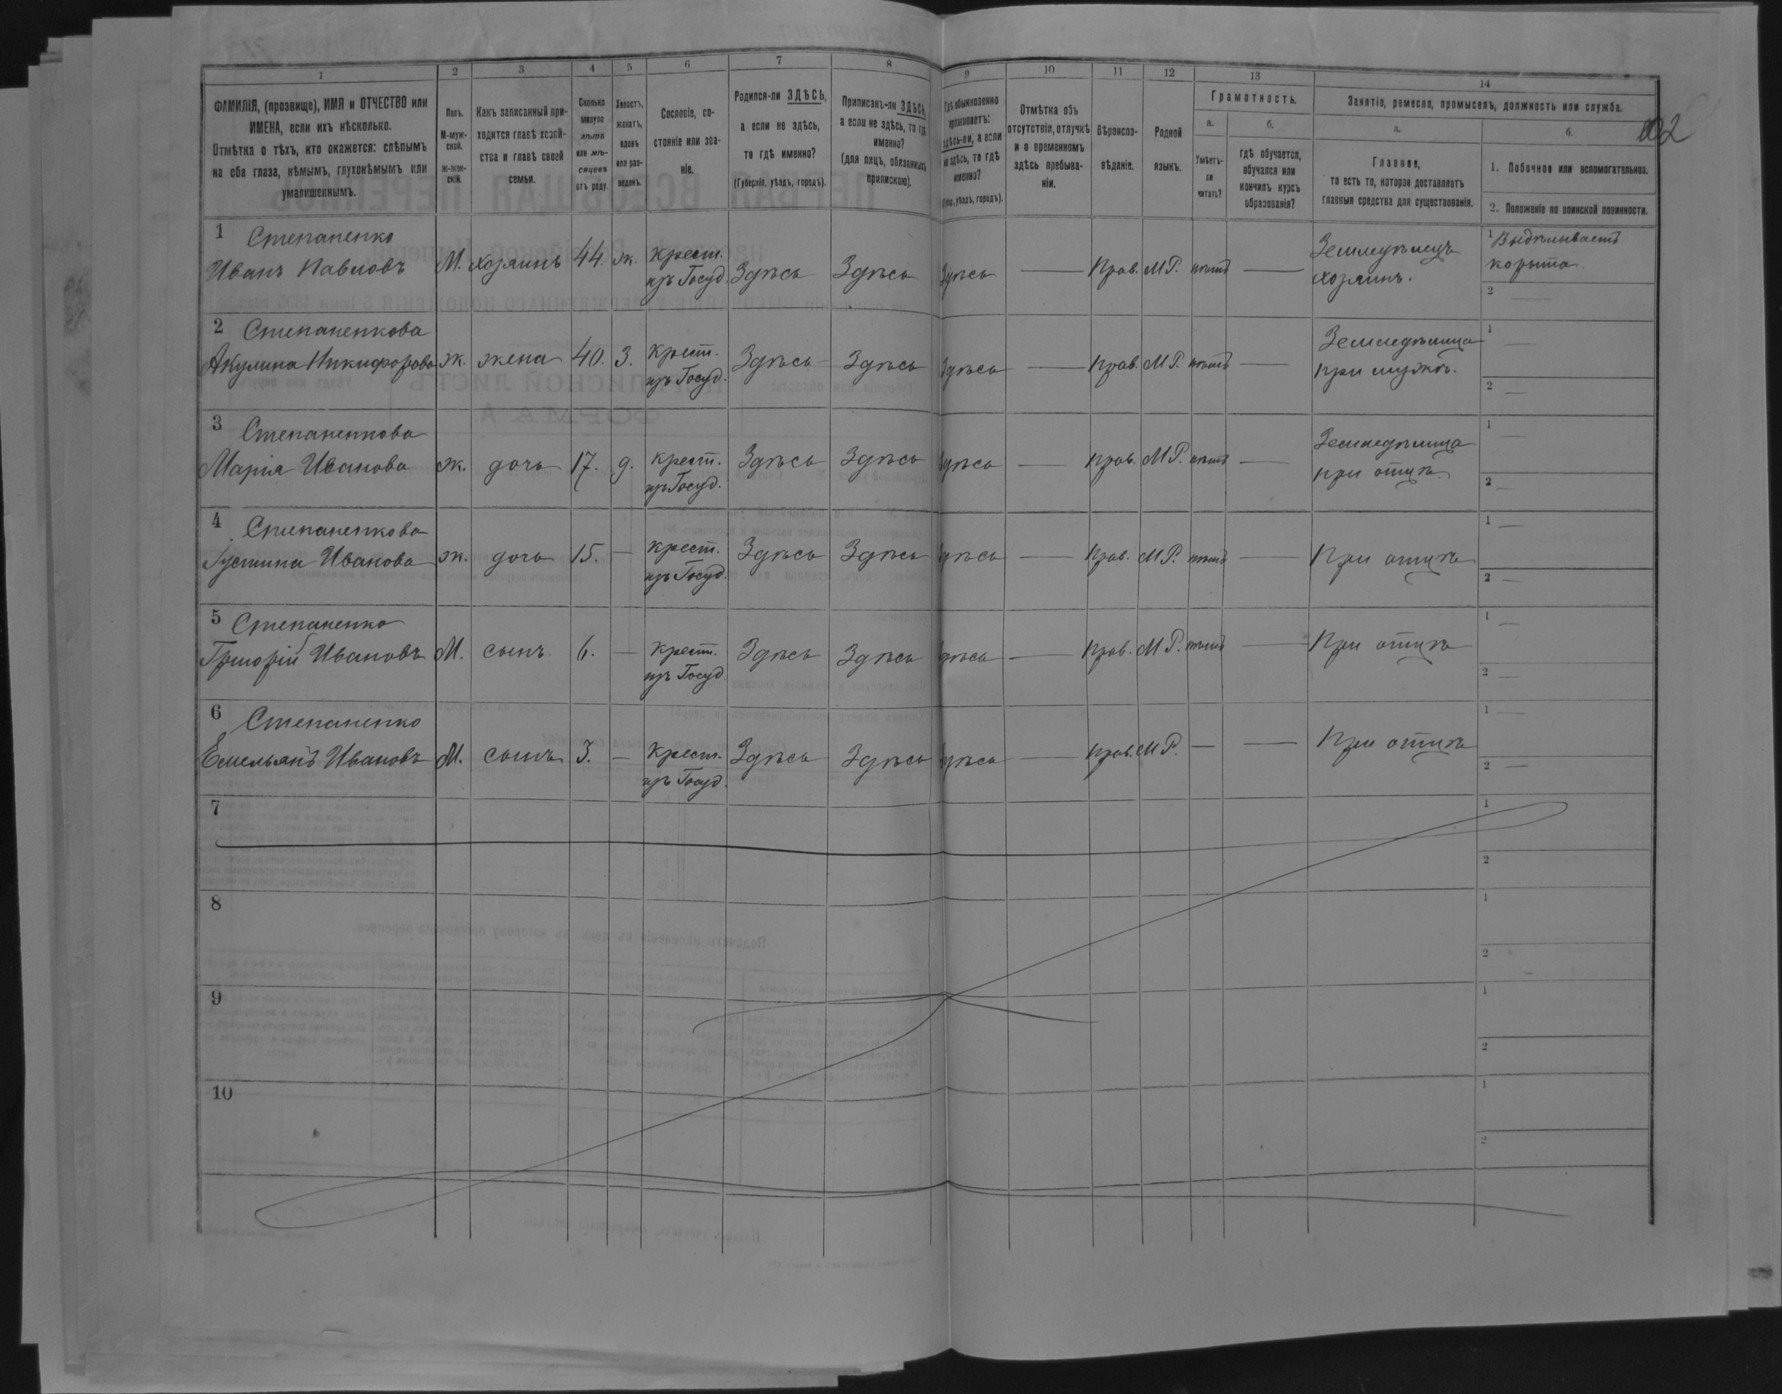 1 2 3 4 5 6 7 8 9 10 11 12 13 14
ФАМИЛІЯ, (прозвище), ИМЯ и ОТЧЕСТВО или
ИМЕНА, если ихъ нѣсколько.
Отмѣтка о тѣхъ, кто окажется: слѣпымъ
на оба глаза, нѣмымъ, глухонѣмымъ или
умалишеннымъ.
Полъ.
М-муж-
ской.
Ж-жен-
скій.
Какъ записанный при-
ходится главѣ хозяй-
ства и главѣ своей
семьи.
Сколько
минуло
лѣтъ
или мѣ-
сяцевъ
отъ роду.
Холостъ,
женатъ,
вдовъ
или раз-
веденъ.
Сословіе, со-
стояніе или зва-
ніе.
Родился-ли ЗДѢСЬ,
а если не здѣсь,
то гдѣ именно?
(Губернія, уѣздъ, городъ).
Приписанъ-ли ЗДѢСЬ,
а если не здѣсь, то гдѣ
именно?
(для лицъ, обязанныхъ
припискою).
Гдѣ обыкновенно
проживаетъ:
здѣсь-ли, а если
не здѣсь, то гдѣ
именно?
(Губ., уѣздъ, городъ).
Отмѣтка объ
отсутствіи, отлучкѣ
и о временномъ
здѣсь пребыва-
ніи.
Вѣроиспо-
вѣданіе.
Родной
языкъ.
Грамотность.
а.
Умѣетъ-
ли
читать?
б.
гдѣ обучается,
обучался или
кончилъ курсъ
образованія?
Занятіе, ремесло, промыселъ, должность или служба.
а.
Главное,
то есть то, которое доставляетъ
главныя средства для существованія.
б.
1. Побочное или вспомогательное.
2. Положеніе по воинской повинности.
1 Степаненко
Иванъ Павловъ М. хозяинъ 44 ж. крест. изъ Госуд. Здѣсь Здѣсь Здѣсь — Прав. М.Р. нѣтъ — Земледѣлецъ хозяинъ.
1 Выдѣлываетъ корыта
2 —
2 Степаненкова
Акулина Никифорова ж. жена 40. З. крест. изъ Госуд. Здѣсь Здѣсь Здѣсь — Прав. М.Р. нѣтъ — Земледѣлица при мужѣ.
1 —
2 —
3 Степаненкова
Марія Иванова ж. дочь 17. д. крест. изъ Госуд. Здѣсь Здѣсь Здѣсь — Прав. М.Р. нѣтъ — Земледѣлица при отцѣ
1 —
2 —
4 Степаненкова
Иванова ж. дочь 15. — крест. изъ Госуд. Здѣсь Здѣсь Здѣсь — Прав. М.Р. нѣтъ — При отцѣ
1 —
2 —
5 Степаненко
Григорій Ивановъ М. сынъ 6. — крест. изъ Госуд. Здѣсь Здѣсь Здѣсь — Прав. М.Р. нѣтъ — При отцѣ
1 —
2 —
6 Степаненко
Емельянъ Ивановъ М. сынъ 3. — крест. изъ Госуд. Здѣсь Здѣсь Здѣсь — Прав. М.Р. — — При отцѣ
1 —
2 —
7
1
2
8
1
2
9
1
2
10
1
2